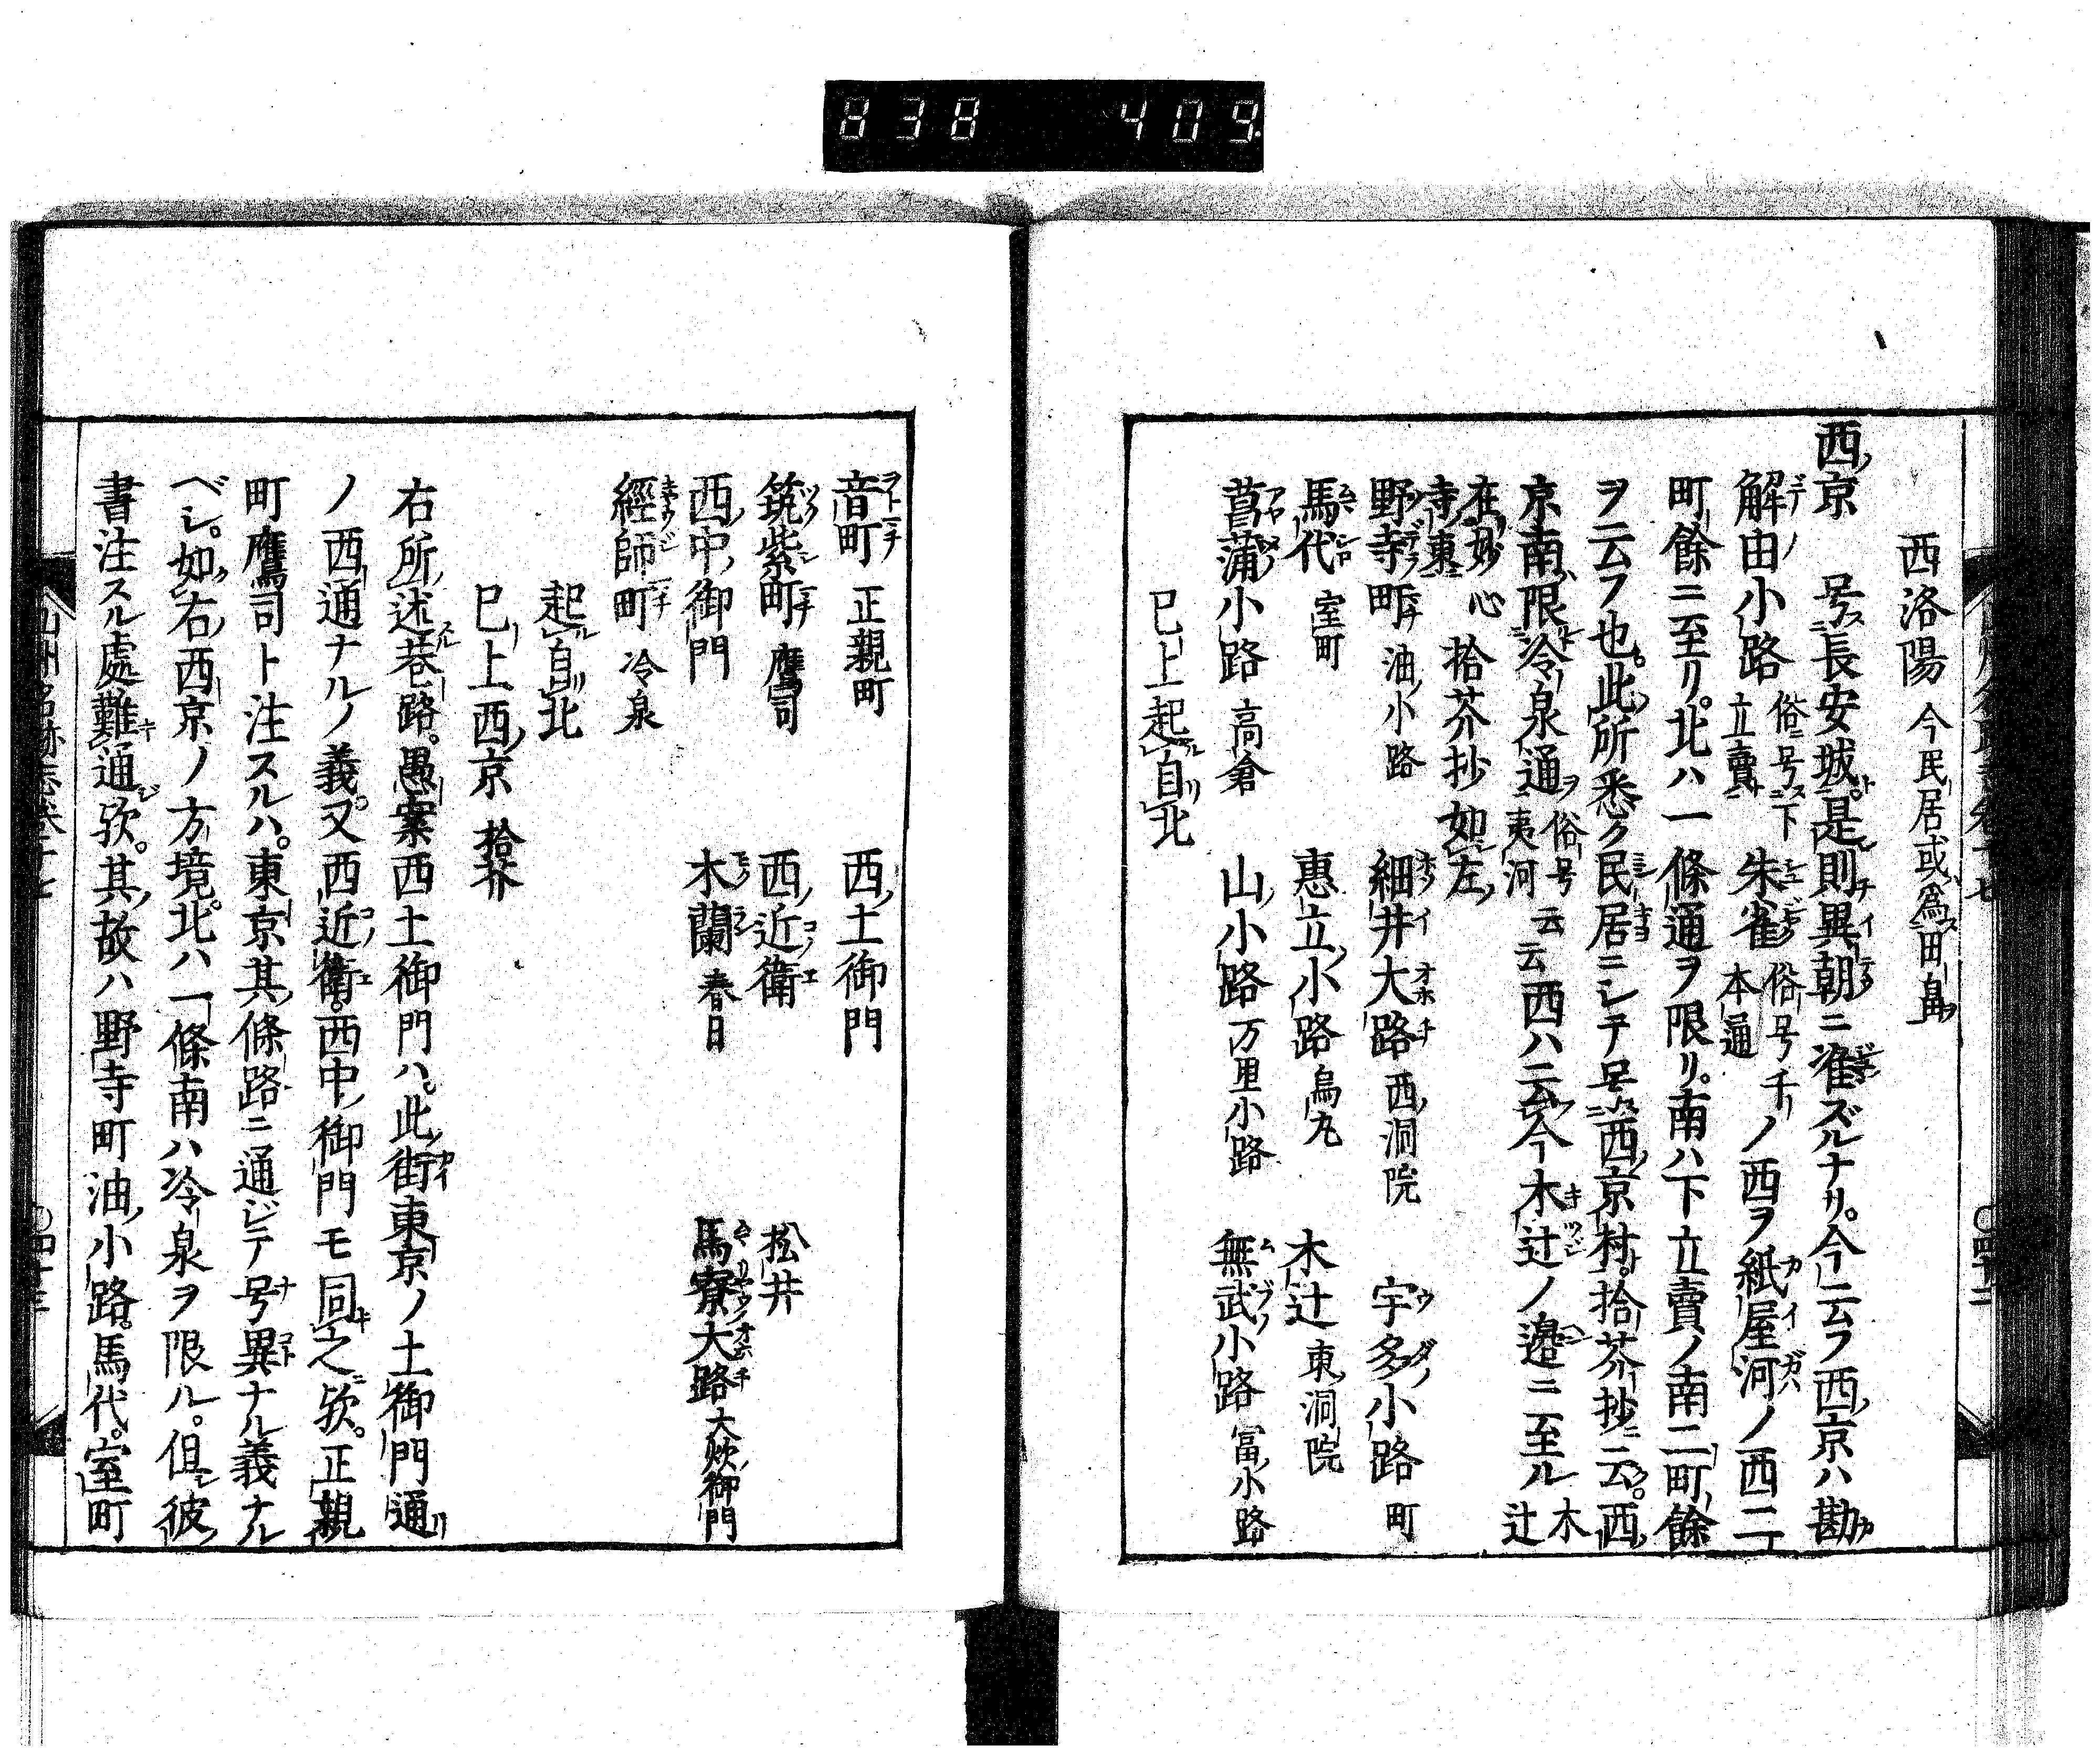 838 409
西洛陽 今民居或為田畠
西京 号長安城是則異朝ニ准ズルナリ。今云フ西京ハ勘
解由小路 俗号下立賣 朱雀 俗号千本通 ノ西ヲ紙屋河ノ西二
町餘ニ至リ。北ハ一條通ヲ限リ。南ハ下立賣ノ南二町餘
ヲ云フ也。此所悉ク民居ニシテ号西京村。拾芥抄ニ云。西
京南限冷泉通 俗号夷河云云 西ハ云今木辻ノ邉ニ至ル 木辻
在妙心寺東 拾芥抄如左
野寺町 油小路 細井大路 西洞院 宇多小路 町
馬代 室町 惠立小路 烏丸 木辻 東洞院
菖蒲小路 高倉 山小路 万里小路 無武小路 冨小路
已上起自北
音町 正親町 西土御門
筑紫町 鷹司 西近衛 松井
西中御門 木蘭 春日 馬寮大路 大炊御門
經師町 冷泉
起自北
已上西京 拾芥
右所述巷路。愚案西土御門ハ。此街東京ノ土御門通
ノ西通ナルノ義。又西近衛。西中御門モ同之欤。正親
町鷹司ト注スルハ。東京其條路ニ通ジテ号異ナル義ナル
ベシ。如右西京ノ方境。北ハ一條南ハ冷泉ヲ限ル。但彼
書注スル處難通欤。其故ハ野寺町油小路。馬代。室町